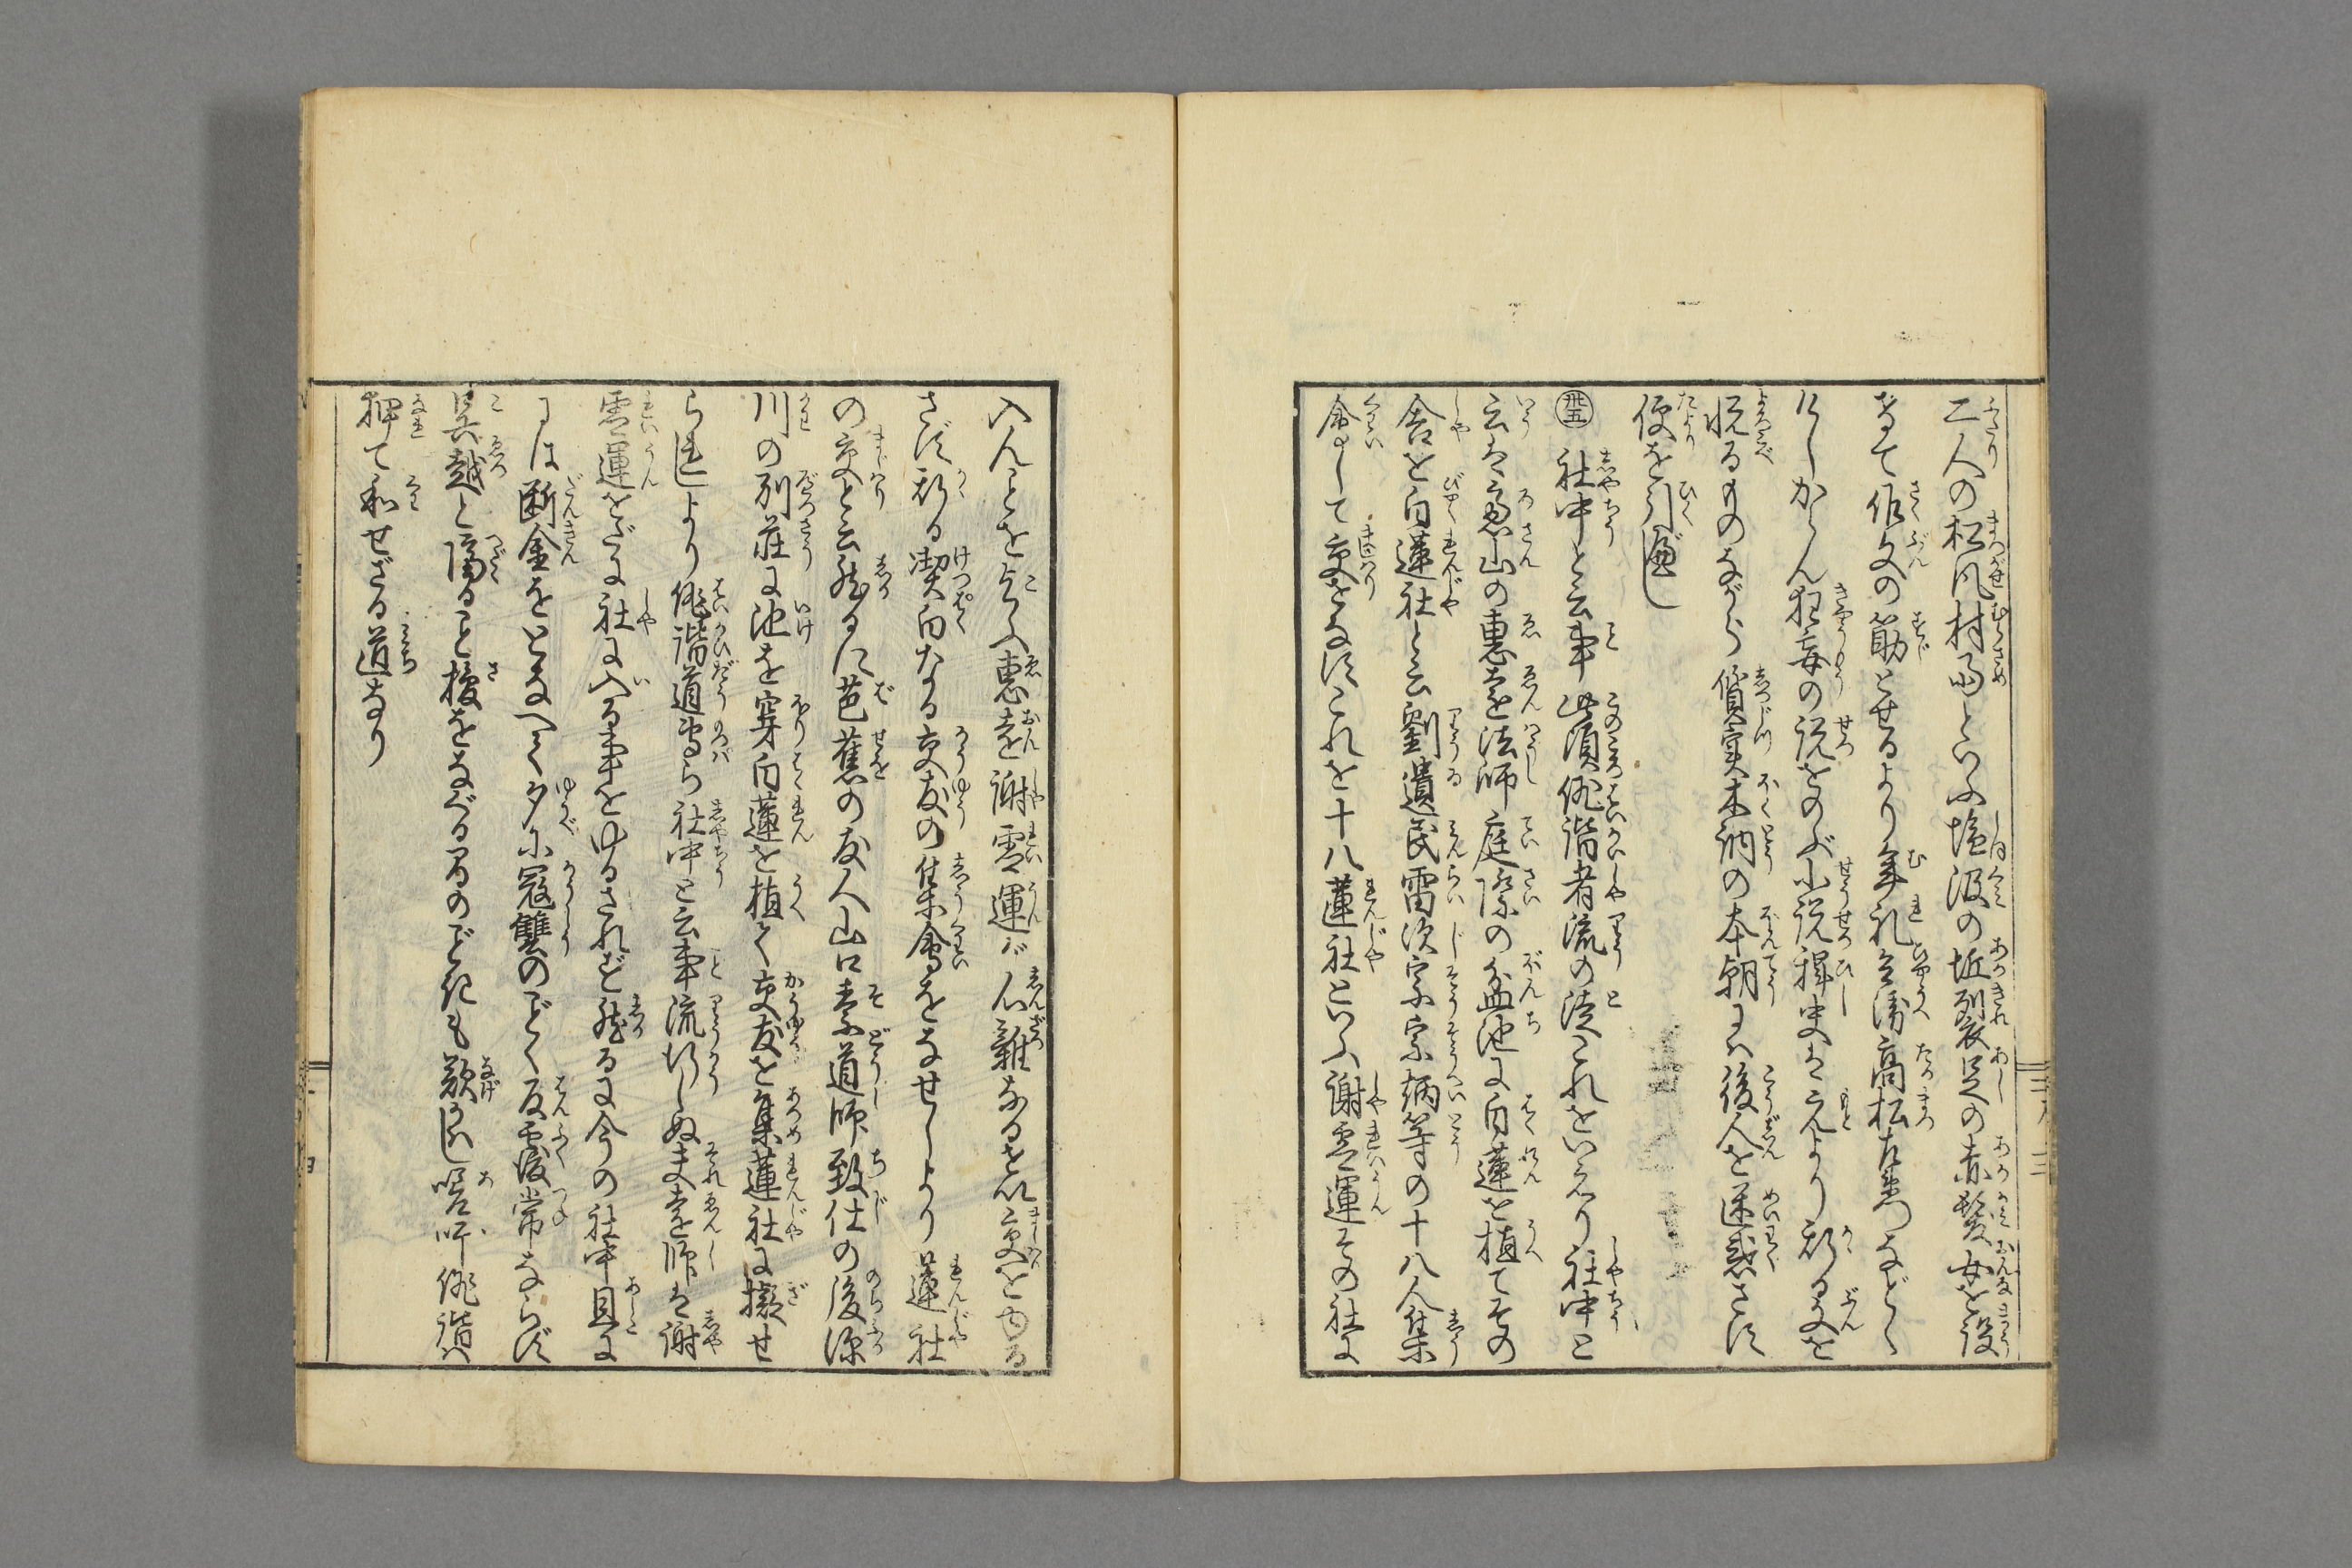 二人の松風村雨といふ塩汲の垢裂衣足の赤髪女を設
けて作文の筋とせるより牟礼兵衛高松左衛門などゝ
けしからん狂妄の説をのぶ小説稗史は元より斯る文を
悦るものながら質実木訥の本朝には後人を迷惑さす
便を引べし
卅五 社中と云事 此頃俳諧者流の徒これをいへり社中と
云は廬山の恵遠法師庭際の盆池に白蓮を植てその
舎を白蓮社と云劉遺民雷次宗宗炳等の十八人集
会して交をなすこれを十八蓮社といふ謝霊運その社に
入んことを乞ふ恵遠謝霊運が心雑なるを以交をゆる
さず斯る潔白なる交友の集会をなせしより蓮社
の交と云然るに芭蕉の友人山口素道師致仕の後深
川の別荘に池を穿白蓮を植て交友を集蓮社に擬せ
られしより俳諧道専ら社中と云事流行しぬ夫遠師は謝
霊運をだに社に入る事をゆるされず然るに今の社中旦に
は断金をとなへて夕に冦讐のごとく反覆常ならず
呉越と隔ること掌をなぐるまのごときも歎かはし嗟吁俳諧は
狎て和せざる道なり